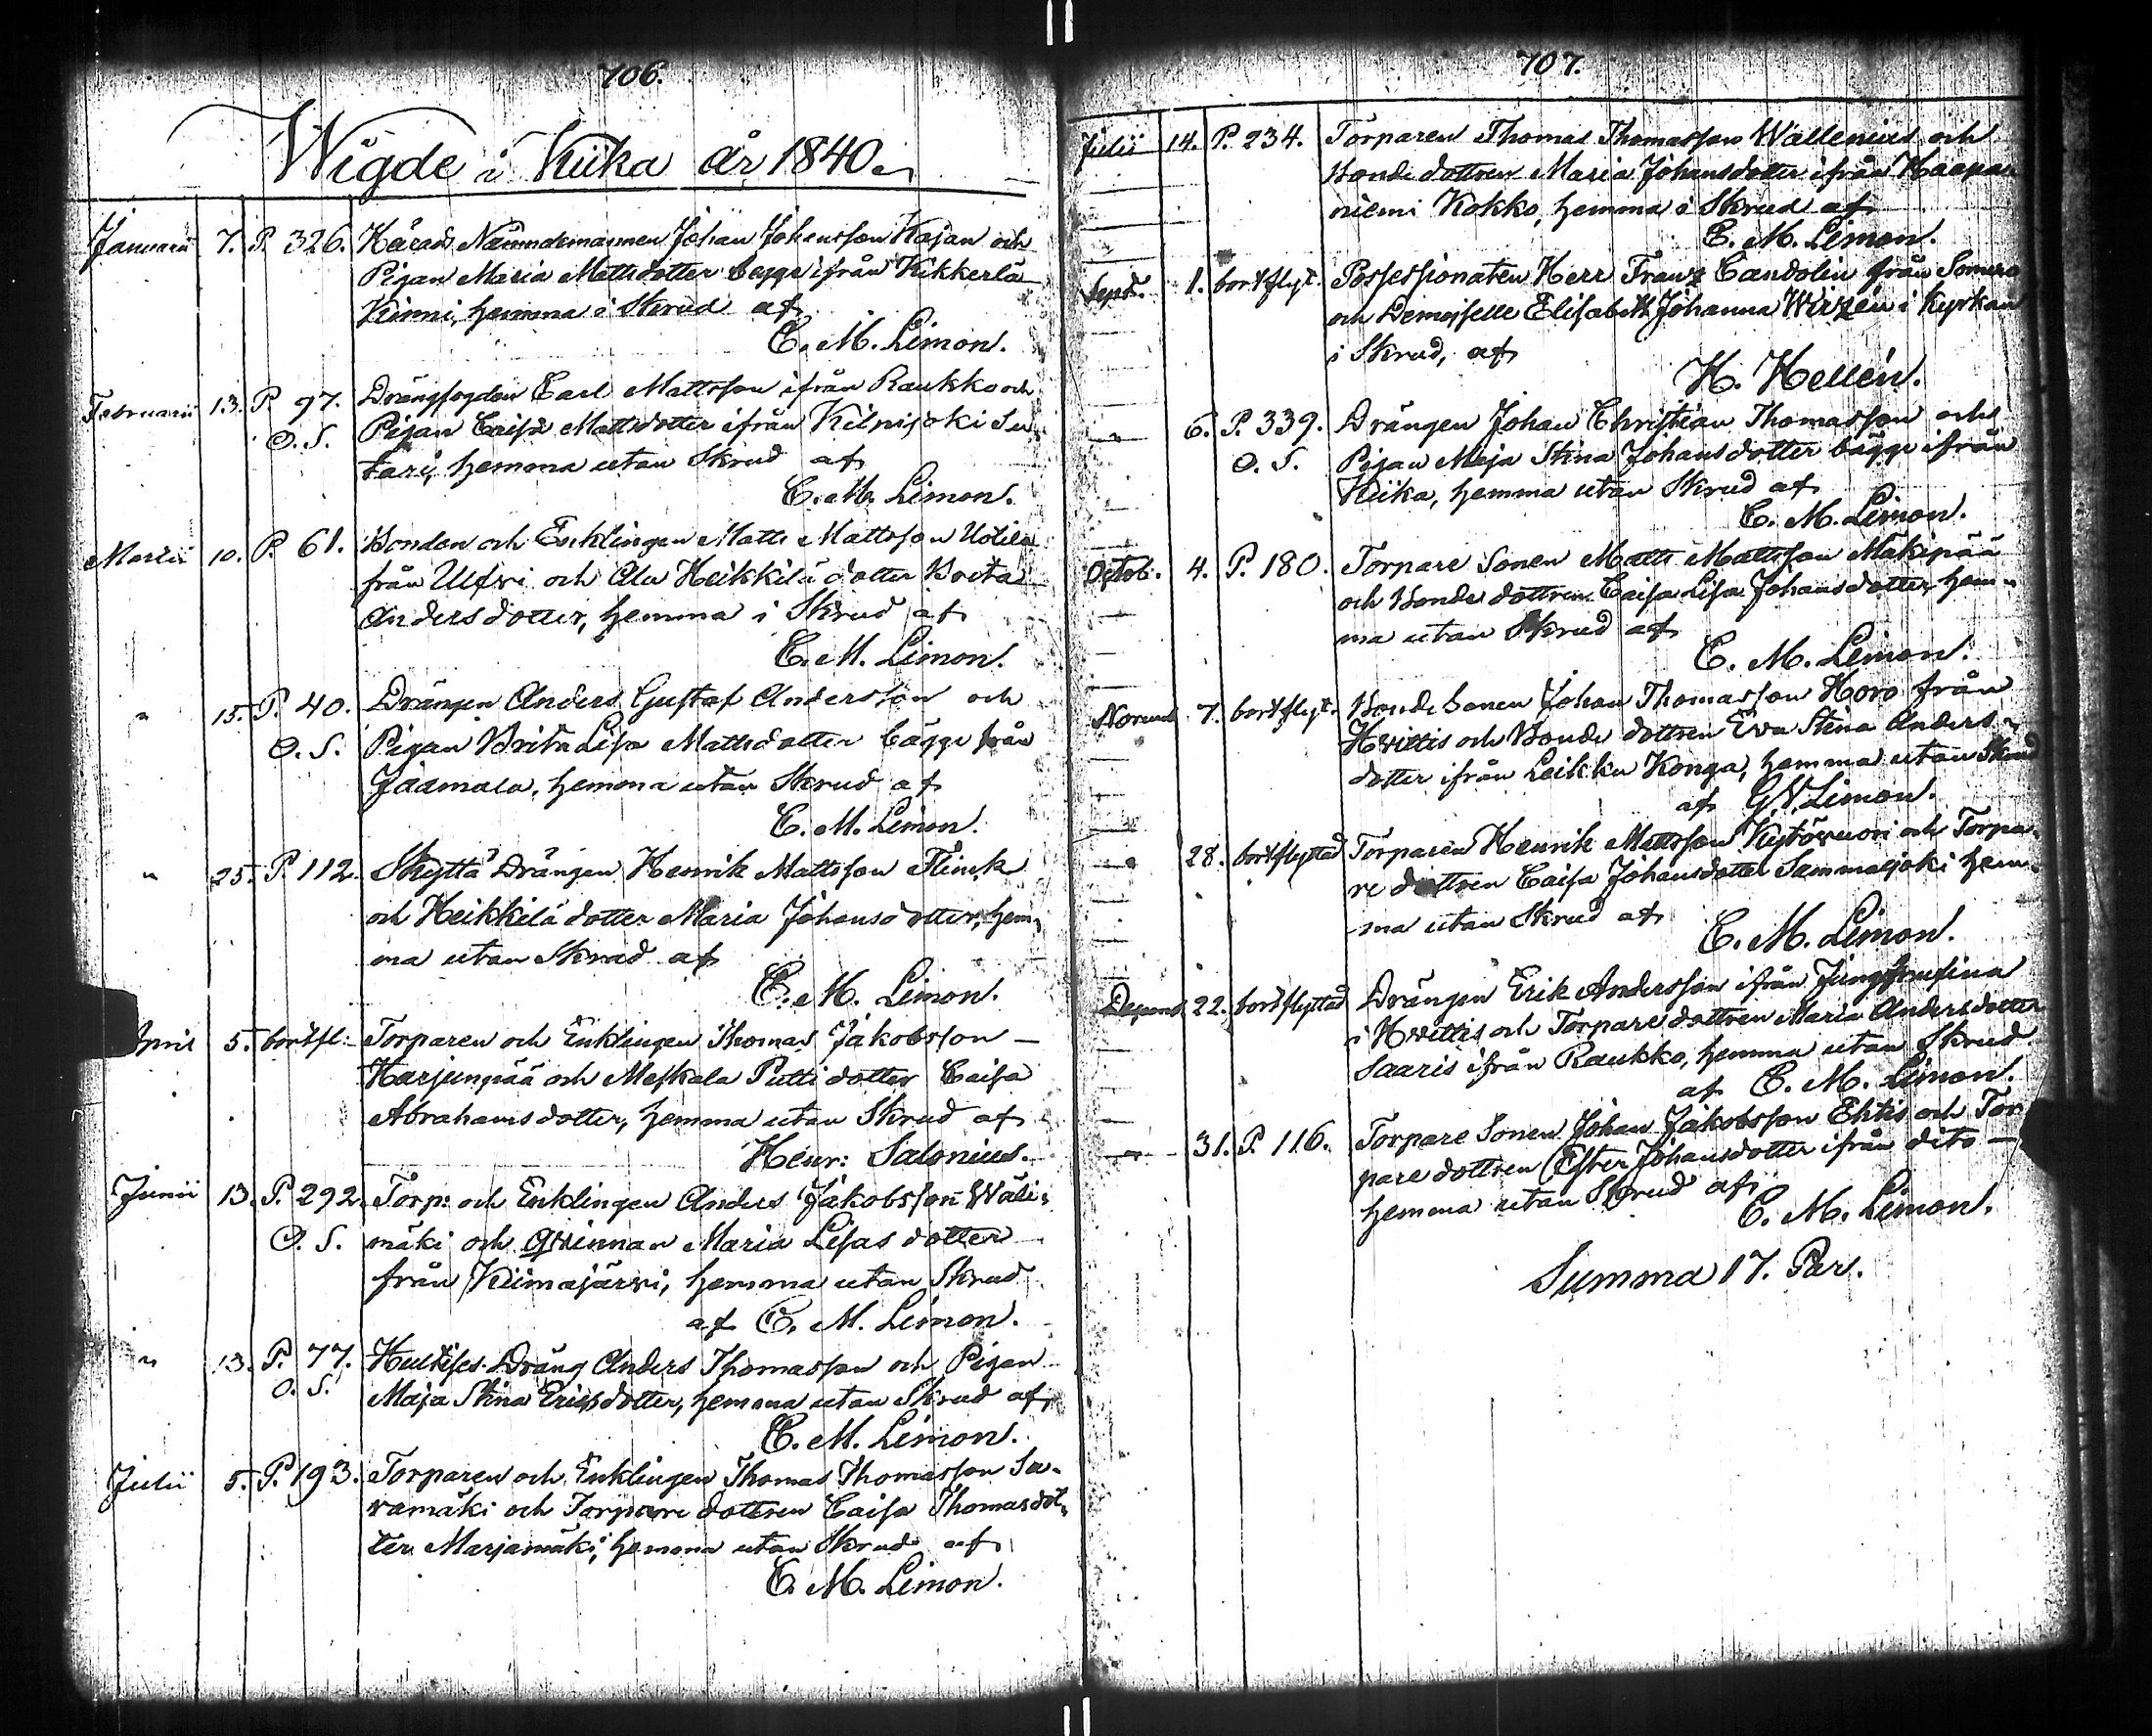 706.
Wigde i Kiika år 1840.
Januarii 7. P. 326. Härads Nämndemannen Johan Johansson Kajan och
Pigan Maria Mattsdotter bägge ifrån Kikkerlä
Kinni, hemma i Skrud af
C. M. Limon.
Februarii 13. P. 97. Drängfogden Carl Mattsson ifrån Raukko och
O. S. Pigan Caisa Mattsdotter ifrån Kilpijoki Su
tari, hemma utan Skrud af
C. M. Limon.
Martii 10. P. 61. Bonden och Enklingen Matts Mattsson Uotila
från Ulfvi och Ala Heikkilä dotter Beata
Andersdotter, hemma i Skrud af
C. M. Limon.
" 15. P. 40. Drängen Anders Gustaf Andersson och
O. S. Pigan Brita Lisa Mattsdotter bägge från
Jaamala, hemma utan Skrud af
C. M. Limon.
" 25. P. 112. Skyttä Drängen Henrik Mattsson Flinck
och Heikkilä dotter Maria Johansdotter, hem-
ma utan Skrud af
C. M. Limon.
April 5. bortfl: Torparen och Enklingen Thomas Jakobsson
Harjunpää och Meskala Putti dotter Caisa
Abrahamsdotter, hemma utan Skrud af
Henr: Salonius.
Junii 13. P. 292. Torp: och Enklingen Anders Jakobsson Wäli-
O. S. mäki och Qvinnan Maria Lisas dotter
från Kiimajärvi, hemma utan Skrud
af C. M. Limon.
" 13. P. 77. Huttises Dräng Anders Thomasson och Pigan
O. S. Maja Stina Ericsdotter, hemma utan Skrud af
C. M. Limon.
Julii 5. P. 193. Torparen och Enklingen Thomas Thomasson Sa-
ramäki och Torpare dottren Caisa Thomasdot-
ter Marjamäki, hemma utan Skrud af
C. M. Limon.
707.
Julii 14. P. 234. Torparen Thomas Thomasson Wallenius och
Bonde dottren Maria Johansdotter ifrån Haapa-
niemi Kokko, hemma i Skrud af
C. M. Limon.
Sept. 1. bortflyt. Possessionaten Herr Franz Candolin från Somero
och Demoiselle Elisabeth Johanna Wirzén i Kyrkan
i Skrud, af
H. Hellén.
" 6. P. 339. Drängen Johan Christian Thomasson och
O. S. Pigan Maja Stina Johansdotter bägge ifrån
Kiika, hemma utan Skrud af
C. M. Limon.
Octob. 4. P. 180. Torpare Sonen Matts Mattsson Mäkipää
och Bonde dottren Caisa Lisa Johansdotter, hem-
ma utan Skrud af
C. M. Limon.
Novemb 7. bortflyt. Bonde Sonen Johan Thomasson Horo från
Hvittis och Bonde dottren Eva Stina Anders-
dotter ifrån Leikku Konga, hemma utan Skrud
af G N Limon.
" 28. bortflyttad Torparen Henrik Mattsson Kytövuori och Torpa-
re dottren Caisa Johansdotter Sammaljoki hem-
ma utan Skrud af
C. M. Limon.
Decemb. 22. bortflyttad Drängen Erik Andersson ifrån
i Hvittis och Torpare dottren Maria Andersdotter
Saaris ifrån Raukko, hemma utan Skrud
af C. M. Limon.
" 31. P. 116. Torpare Sonen Johan Jakobsson Ehtis och Tor
pare dottren Ester Johansdotter ifrån dito
hemma utan Skrud af
C. M. Limon.
Summa 17. Par.